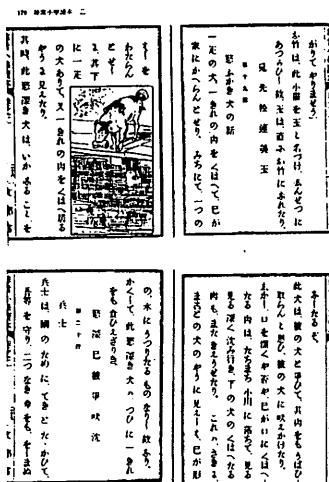 179
小學讀本 二
がりて、やりませう。
お竹は、此小猫を玉と名づけ、しんせつに
あつかひしゆゑ、玉は直にお竹になれたり。
兄 先 拾 玉
第十九課
慾ふかき犬の話
一疋の犬、一きれの肉をくはへて、己が
家にかへらんとせり。みちにて、一つの
はしを
わたらん
とせし
に、其下
に一疋
の犬ありて、又一きれの肉をくはへ居る
やうに見えたり。
其時、此慾深き犬は、いかなることを
なしたるぞ。
此犬は、彼の犬と爭ひて、其肉をもうばひ
取らんと思ひ、彼の犬に吠えかけたり。
しかし、口を開くや否や己が口にくはへ
たる肉は、たちまち小川に落ちて、見る
見る深く沈み行き、下の犬のくはへたる
肉も、またきえうせたり。これ
まことの犬のやうに見えしも、己が形
の、水にうつりたるものなりし故なり。
かくして、此慾深き犬は、つひに一きれ
をも食ひえざりき。
慾 深 己 彼 爭 吠 沈
第二十課
兵士
兵士は、國のために、てきとたゝかひて、
吾等を守り、二つなき命をも、をしまぬ